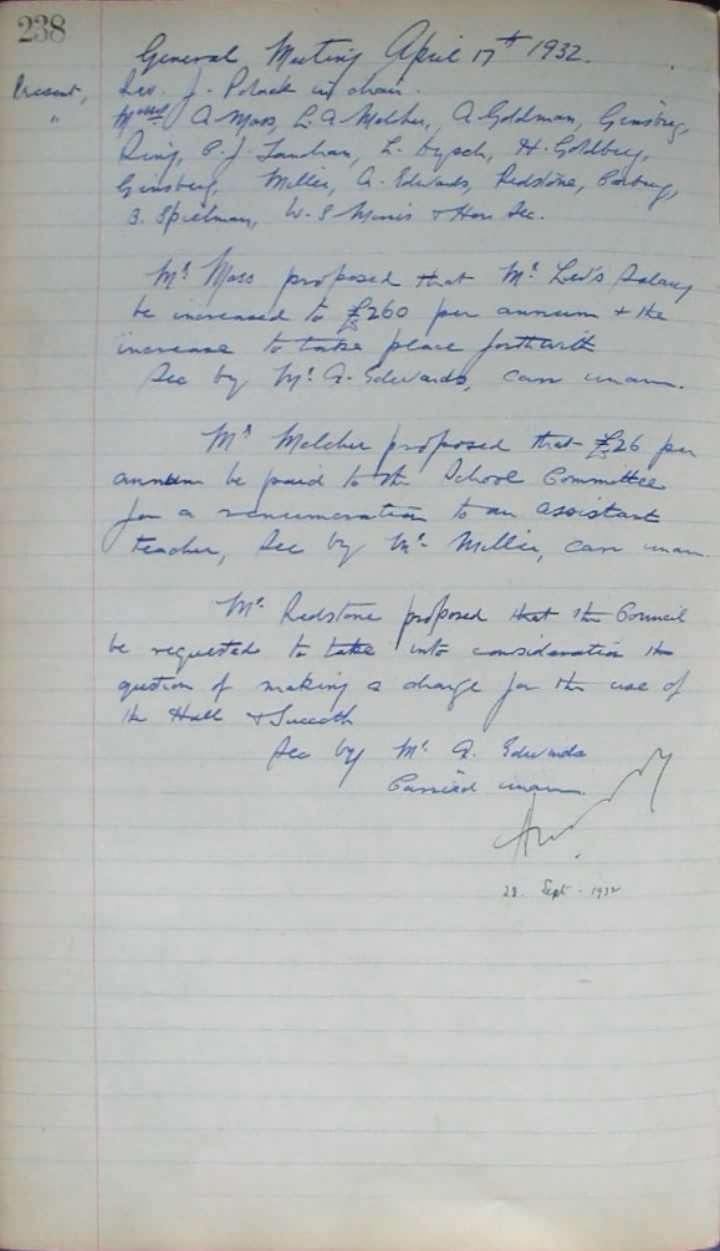 238
General Meeting April 17th 1932.
Present, Rev. J. Polack in chair.
" Messrs A. Moss, L. A. Melcher, A. Goldman, Ginsberg,
Ring, P. J. Landman, L. H. Goldberg,
Ginsberg, Miller, A. Edwards, Redstone,
B. Spielman, W. S. Morris & Hon Sec.
Mr. Moss proposed that Mr. Lev's Salary
be increased to £260 per annum & the
increase to take place forthwith
Sec by Mr. A. Edwards, carr unam.
Mr Melcher proposed that £26 per
annum be paid to the School Committee
for a renumeration to an assistant
teacher, Sec by Mr. Miller, carr unam.
Mr. Redstone proposed that the Council
be requested to take into consideration the
question of making a charge for the use of
the Hall & Succoth
Sec by Mr. A. Edwards
Carried unam.
28. Sept. 1932